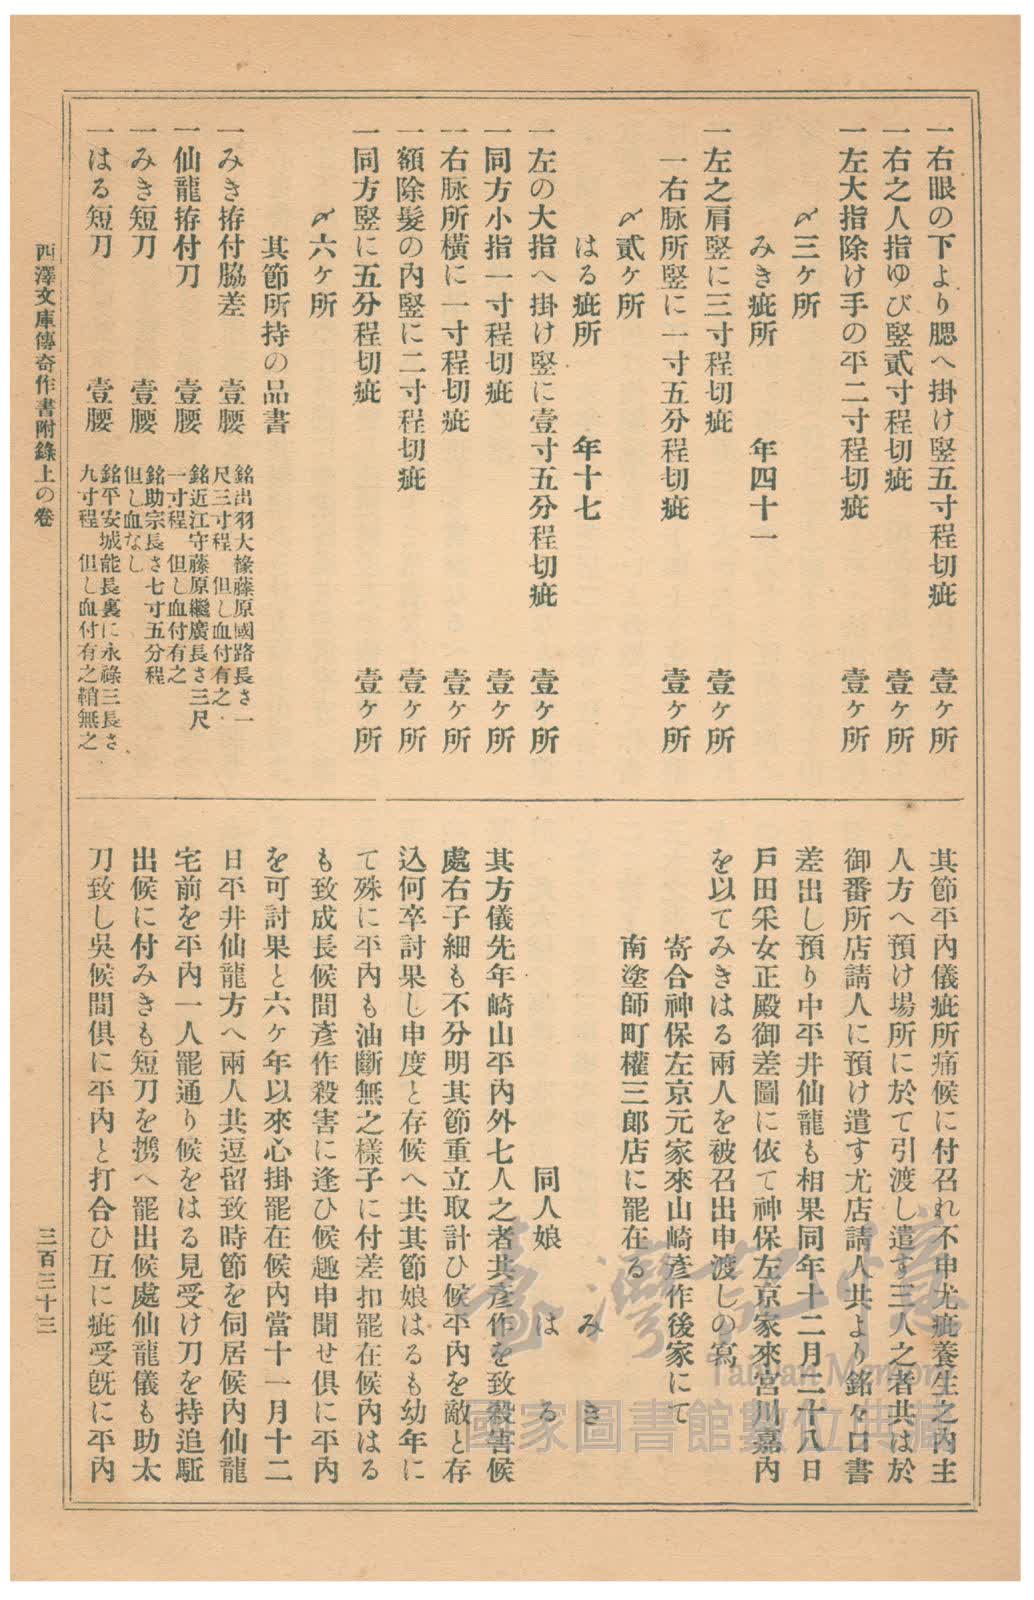 一右眼の下より腮へ掛け竪五寸程切疵　壹ヶ所
一右之人指ゆび竪貳寸程切疵　壹ヶ所
一左大指除け手の平二寸程切疵　壹ヶ所
〆三ヶ所
みき疵所　年四十一
一左之肩竪に三寸程切疵　壹ヶ所
一右脉所竪に一寸五分程切疵　壹ヶ所
〆貳ヶ所
はる疵所　年十七
一左の大指へ掛け竪に壹寸五分程切疵　壹ヶ所
一同方小指一寸程切疵　壹ヶ所
一右脉所橫に一寸程切疵　壹ヶ所
一額除髮の內竪に二寸程切疵　壹ヶ所
一同方竪に五分程切疵　壹ヶ所
〆六ヶ所
其節所持の品書
一みき拵付脇差　壹腰　銘出羽大掾藤原國路長さ一尺三寸程　但し血付有之
一仙龍拵付刀　壹腰　銘近江守藤原繼廣長さ三尺一寸程　但し血付有之
一みき短刀　壹腰　銘助宗長さ七寸五分程但し血なし
一はる短刀　壹腰　銘平安城能長裏に永祿三長さ九寸程　但し血付有之鞘無之
其節平內儀疵所痛候に付召れ不申尤疵養生之內主
人方へ預け場所に於て引渡し遣す三人之者共は於
御番所店請人に預け遣す尤店請人共より銘々口書
差出し預り中平井仙龍も相果同年十二月二十八日
戸田采女正殿御差圖に依て神保左京家來宮川嘉內
を以てみきはる兩人を被召出申渡しの寫
寄合神保左京元家來山崎彥作後家にて
南塗師町權三郎店に罷在る
みき
同人娘　はる
其方儀先年崎山平內外七人之者共彥作を致殺害候
處右子細も不分明其節重立取計ひ候平內を敵と存
込何卒討果し申度と存候へ共其節娘はるも幼年に
て殊に平內も油斷無之樣子に付差扣罷在候內はる
も致成長候間彥作殺害に逢ひ候趣申聞せ俱に平內
を可討果と六ヶ年以來心掛罷在候內當十一月十二
日平井仙龍方へ兩人共逗留致時節を伺居候內仙龍
宅前を平內一人罷通り候をはる見受け刀を持追駈
出候に付みきも短刀を携へ罷出候處仙龍儀も助太
刀致し吳候間俱に平內と打合ひ互に疵受旣に平內
西澤文庫傳奇作書附錄上の卷
三百三十三
臺灣記憶
Taiwan Memory
國家圖書館數位典藏